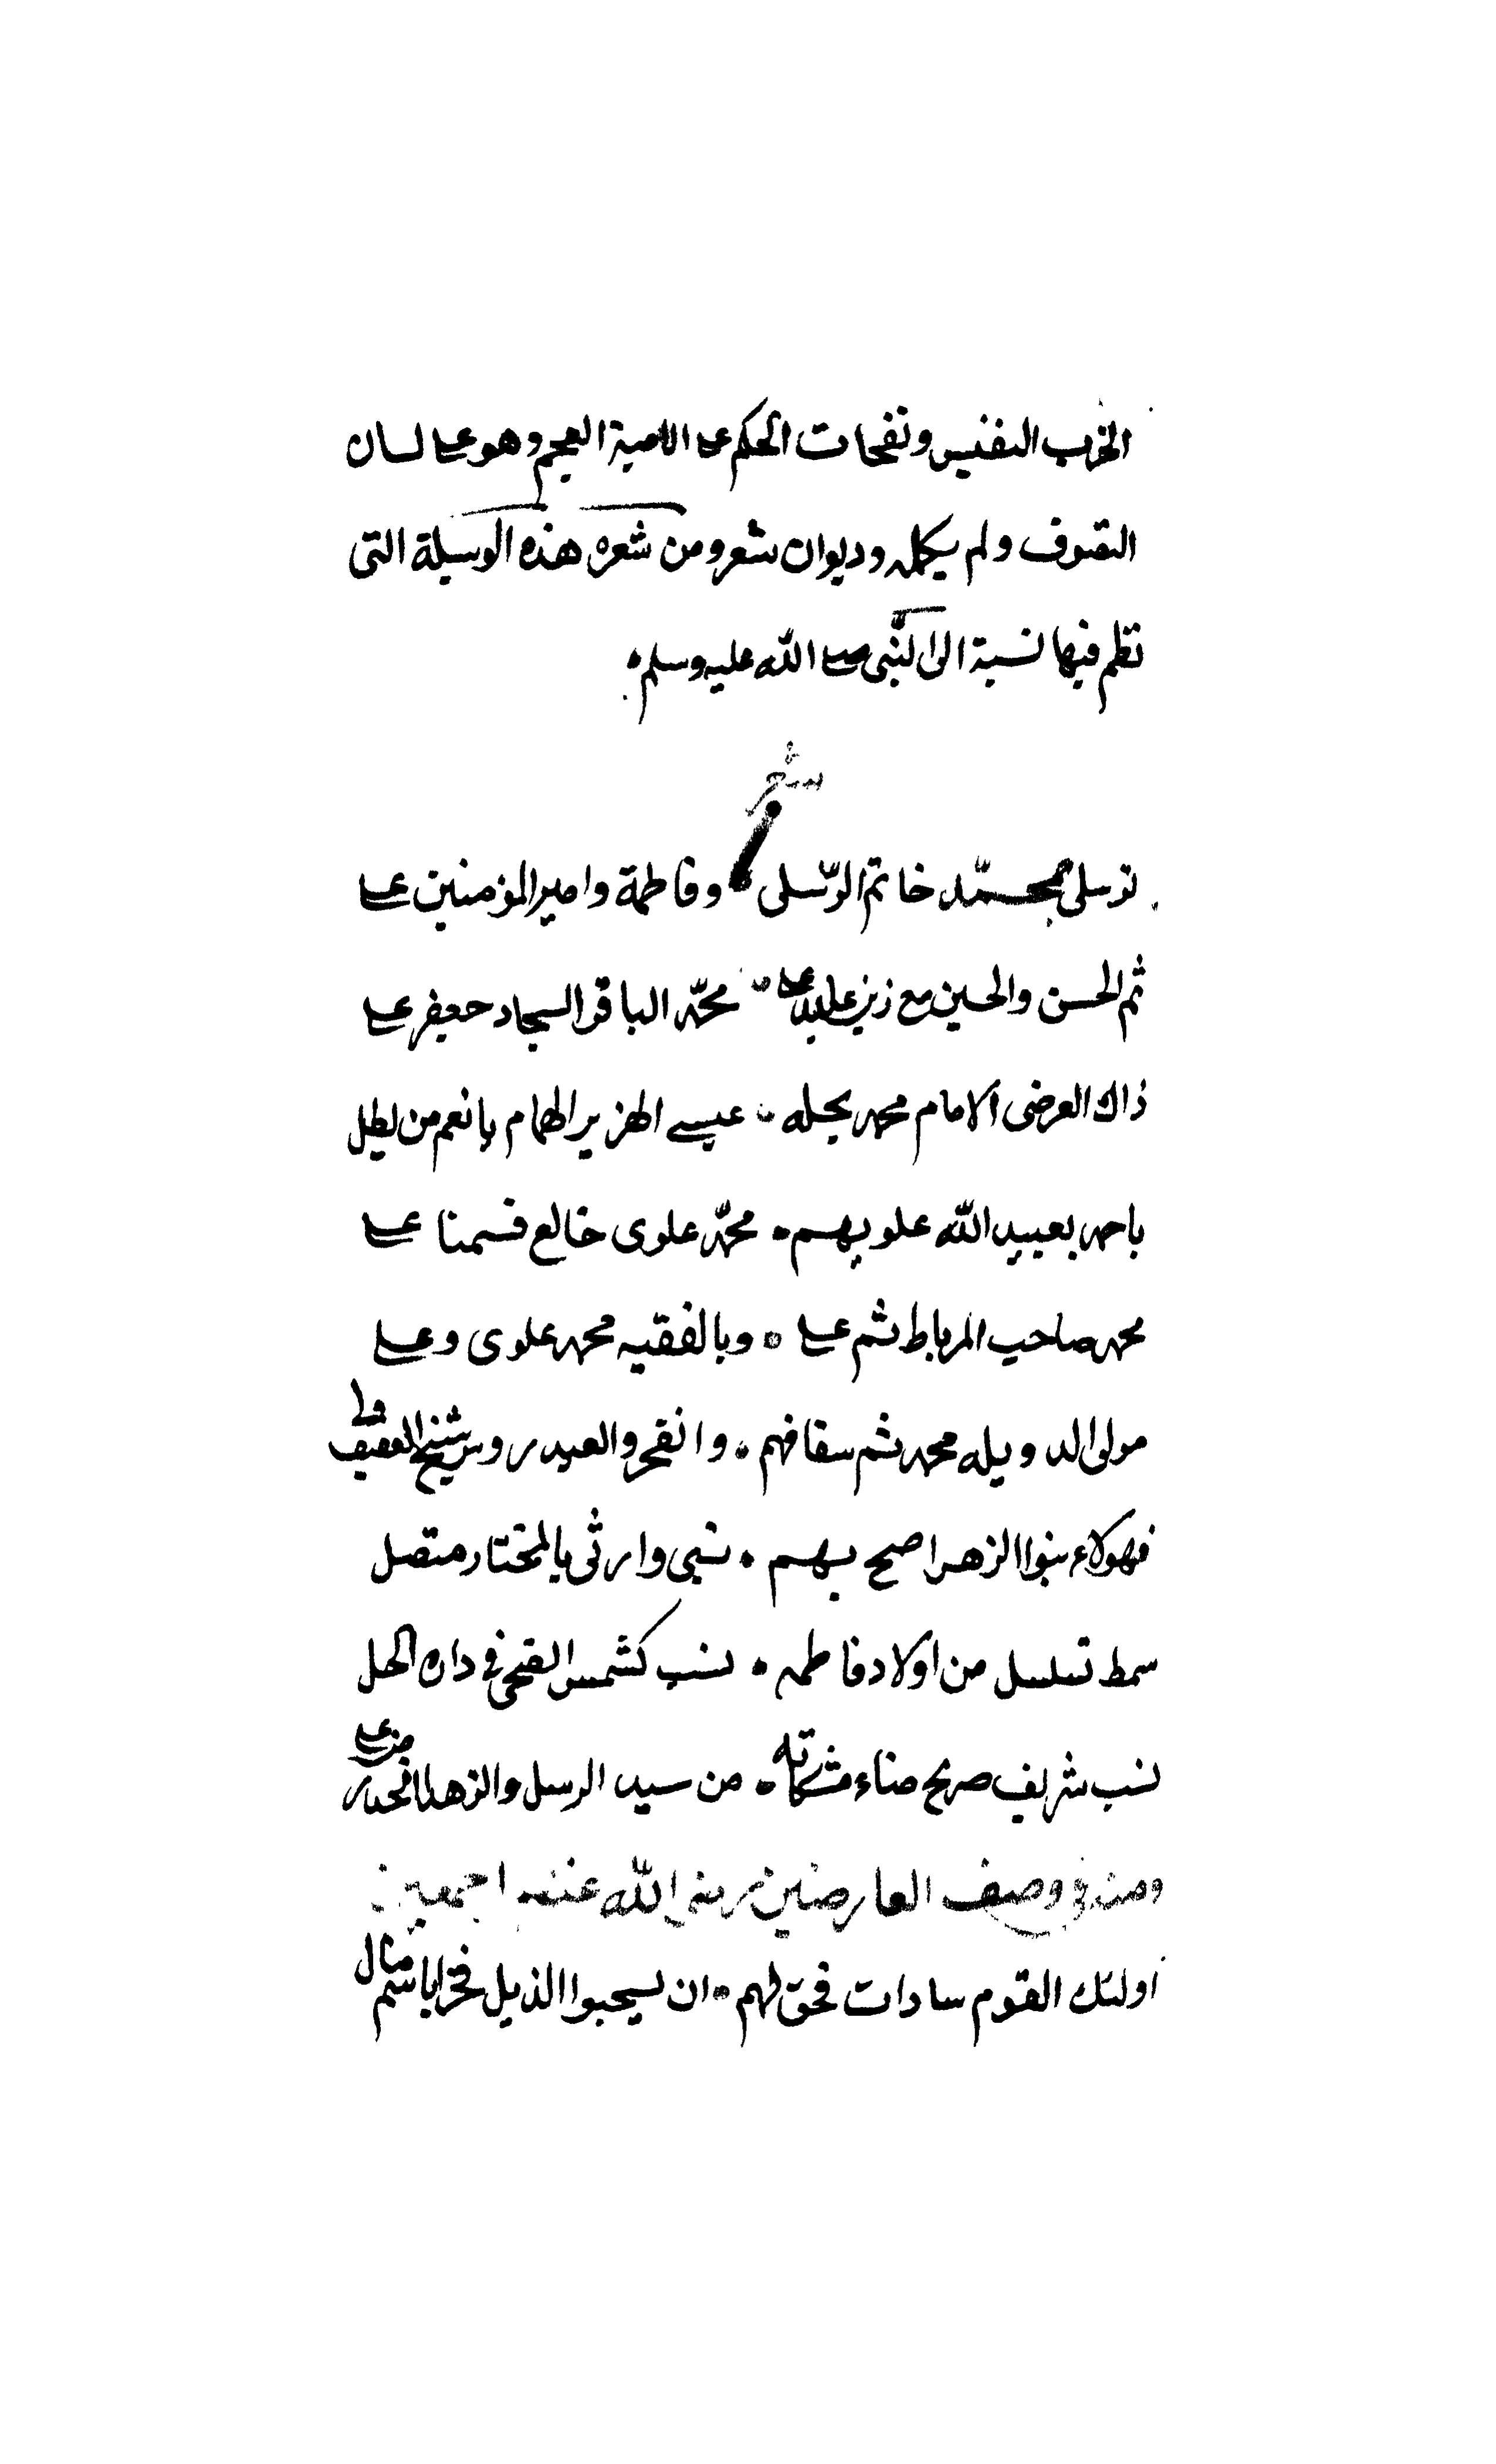 الحزب النفيس ونفحات الحكم على لامية العجم وهو على لسان
التصوف ولم يكمله وديوان شعر ومن شعره هذه الوسيلة التى
نظم فيها نسبة الى النبى صلى الله عليه وسلم
شعر
توسلى بمحمّد خاتم الرّسلى وفاطمة وامير المؤمنين على
ثم الحسن والحسين مع زين محمّد الباقر السجاد جعفر على
ذاك العرضى الامام محمد بجله عيسى الهزبر الهمام يا نعم من بطل
باحمد بعبيد الله علو بهم محمّد علوى خالع قسمنا على
محمد صاحب المرباط ثم على وبالفقيه محمد علوى وعلى
مولى الدويله محمد ثم سقافهم والعيدروس شيخ العفيف ولى
فهولاء بنوا الزهرا صح بهم نسبى وارثى بالمختار متصل
سمط تسلسل من اولاد فاطمه نسب كشمس الضحى فى دارة الحمل
نسب شريف صريح ضاء مشكاته من سيد الرسل والزهرا انحدر من على
ومنه فى وصف العارضين رضى الله عنهم اجمعين
اولئك القوم سادات فحق لهم ان يسحبوا الذيل فخرا باسم